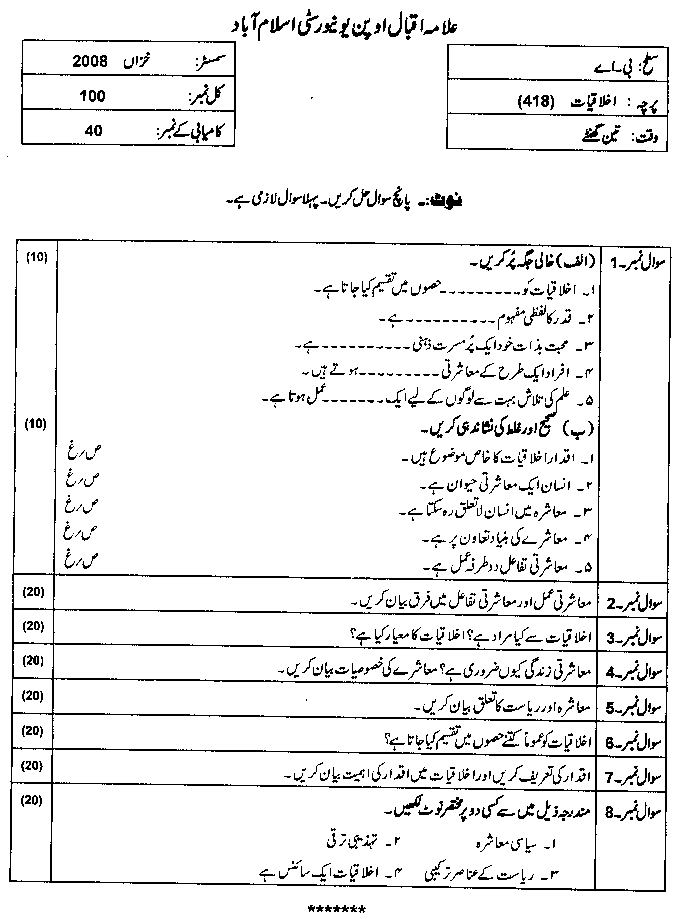 علامہ اقبال اوپن یونیورسٹی اسلام آباد
سطح: بی۔اے
پرچہ: اخلاقیات (418)
وقت: تین گھنٹے
سمسٹر: خزاں 2008
کل نمبر: 100
کامیابی کے نمبر: 40
نوٹ:۔ پانچ سوال حل کریں۔ پہلا سوال لازمی ہے۔
سوال نمبر۔1 (الف) خالی جگہ پُر کریں۔ (10)
۱۔ اخلاقیات کو ۔۔۔۔۔۔۔۔۔ حصوں میں تقسیم کیا جاتا ہے۔
۲۔ قدر کا لفظی مفہوم ۔۔۔۔۔۔۔۔۔۔ ہے۔
۳۔ محبت بذات خود ایک پُر مسرت ذہنی ۔۔۔۔۔۔۔۔۔۔ ہے۔
۴۔ افراد ایک طرح کے معاشرتی ۔۔۔۔۔۔۔۔۔ ہوتے ہیں۔
۵۔ علم کی تلاش بہت سے لوگوں کے لیے ایک ۔۔۔۔۔۔۔ عمل ہوتا ہے۔
(ب) صحیح اور غلط کی نشاندہی کریں۔ (10)
۱۔ اقدار اخلاقیات کا خاص موضوع ہیں۔ ص/غ
۲۔ انسان ایک معاشرتی حیوان ہے۔ ص/غ
۳۔ معاشرہ میں انسان لاتعلق رہ سکتا ہے۔ ص/غ
۴۔ معاشرے کی بنیاد تعاون پر ہے۔ ص/غ
۵۔ معاشرتی تفاعل دو طرفہ عمل ہے۔ ص/غ
سوال نمبر۔2 معاشرتی عمل اور معاشرتی تفاعل میں فرق بیان کریں۔ (20)
سوال نمبر۔3 اخلاقیات سے کیا مراد ہے؟ اخلاقیات کا معیار کیا ہے؟ (20)
سوال نمبر۔4 معاشرتی زندگی کیوں ضروری ہے؟ معاشرے کی خصوصیات بیان کریں۔ (20)
سوال نمبر۔5 معاشرہ اور ریاست کا تعلق بیان کریں۔ (20)
سوال نمبر۔6 اخلاقیات کو عموماً کتنے حصوں میں تقسیم کیا جاتا ہے؟ (20)
سوال نمبر۔7 اقدار کی تعریف کریں اور اخلاقیات میں اقدار کی اہمیت بیان کریں۔ (20)
سوال نمبر۔8 مندرجہ ذیل میں سے کسی دو پر مختصر نوٹ لکھیں۔ (20)
۱۔ سیاسی معاشرہ ۲۔ تہذیبی ترقی
۳۔ ریاست کے عناصر ترکیبی ۴۔ اخلاقیات ایک سائنس ہے
*******